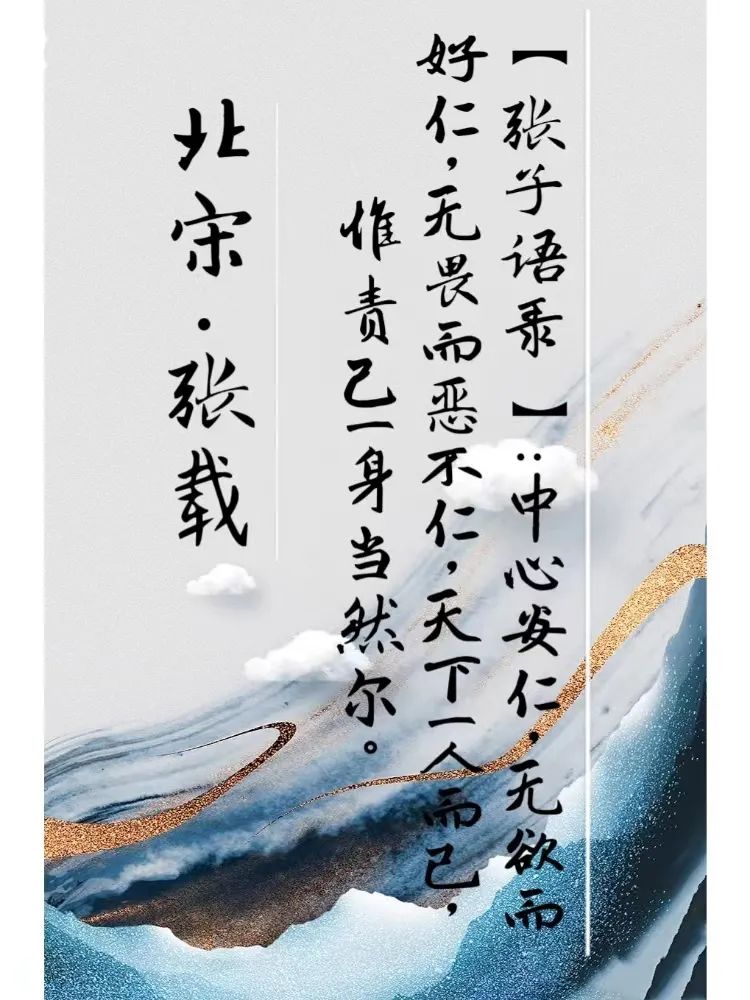 【张子语录】:中心安仁，无欲而
好仁，无畏而恶不仁，天下一人而已，
惟责己一身当然尔。
北宋·张载